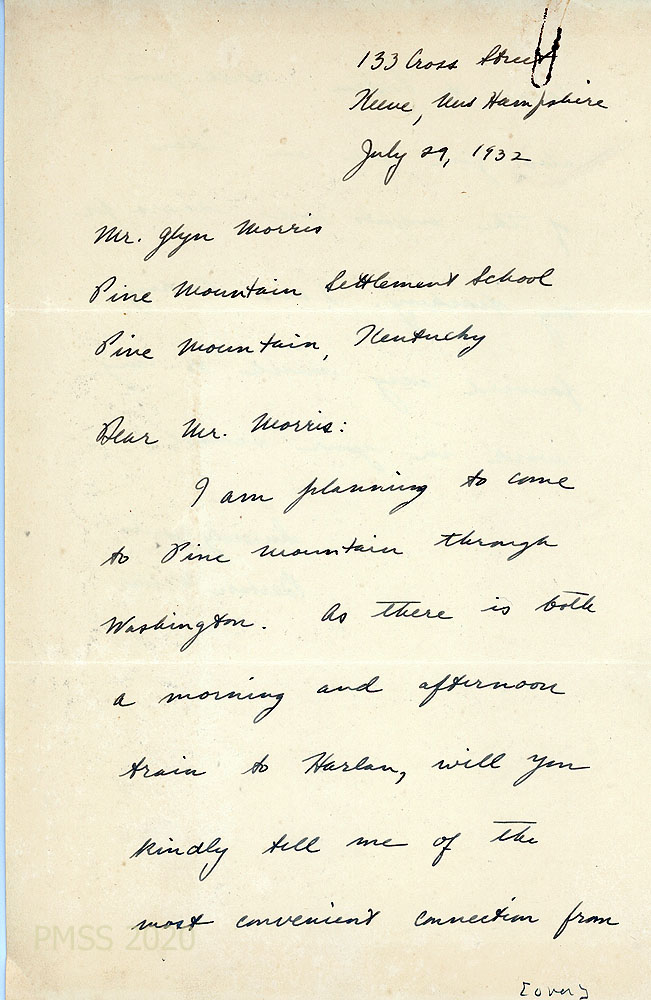 133 Cross Street
Keene, New Hampshire
July 29, 1932
Mr. Glyn Morris
Pine Mountain Settlement School
Pine Mountain, Kentucky
Dear Mr. Morris:
I am planning to come
to Pine Mountain through
Washington. As there is both
a morning and afternoon
train to Harlan, will you
kindly tell me of the
most convenient connection from
PMSS 2020
[over]